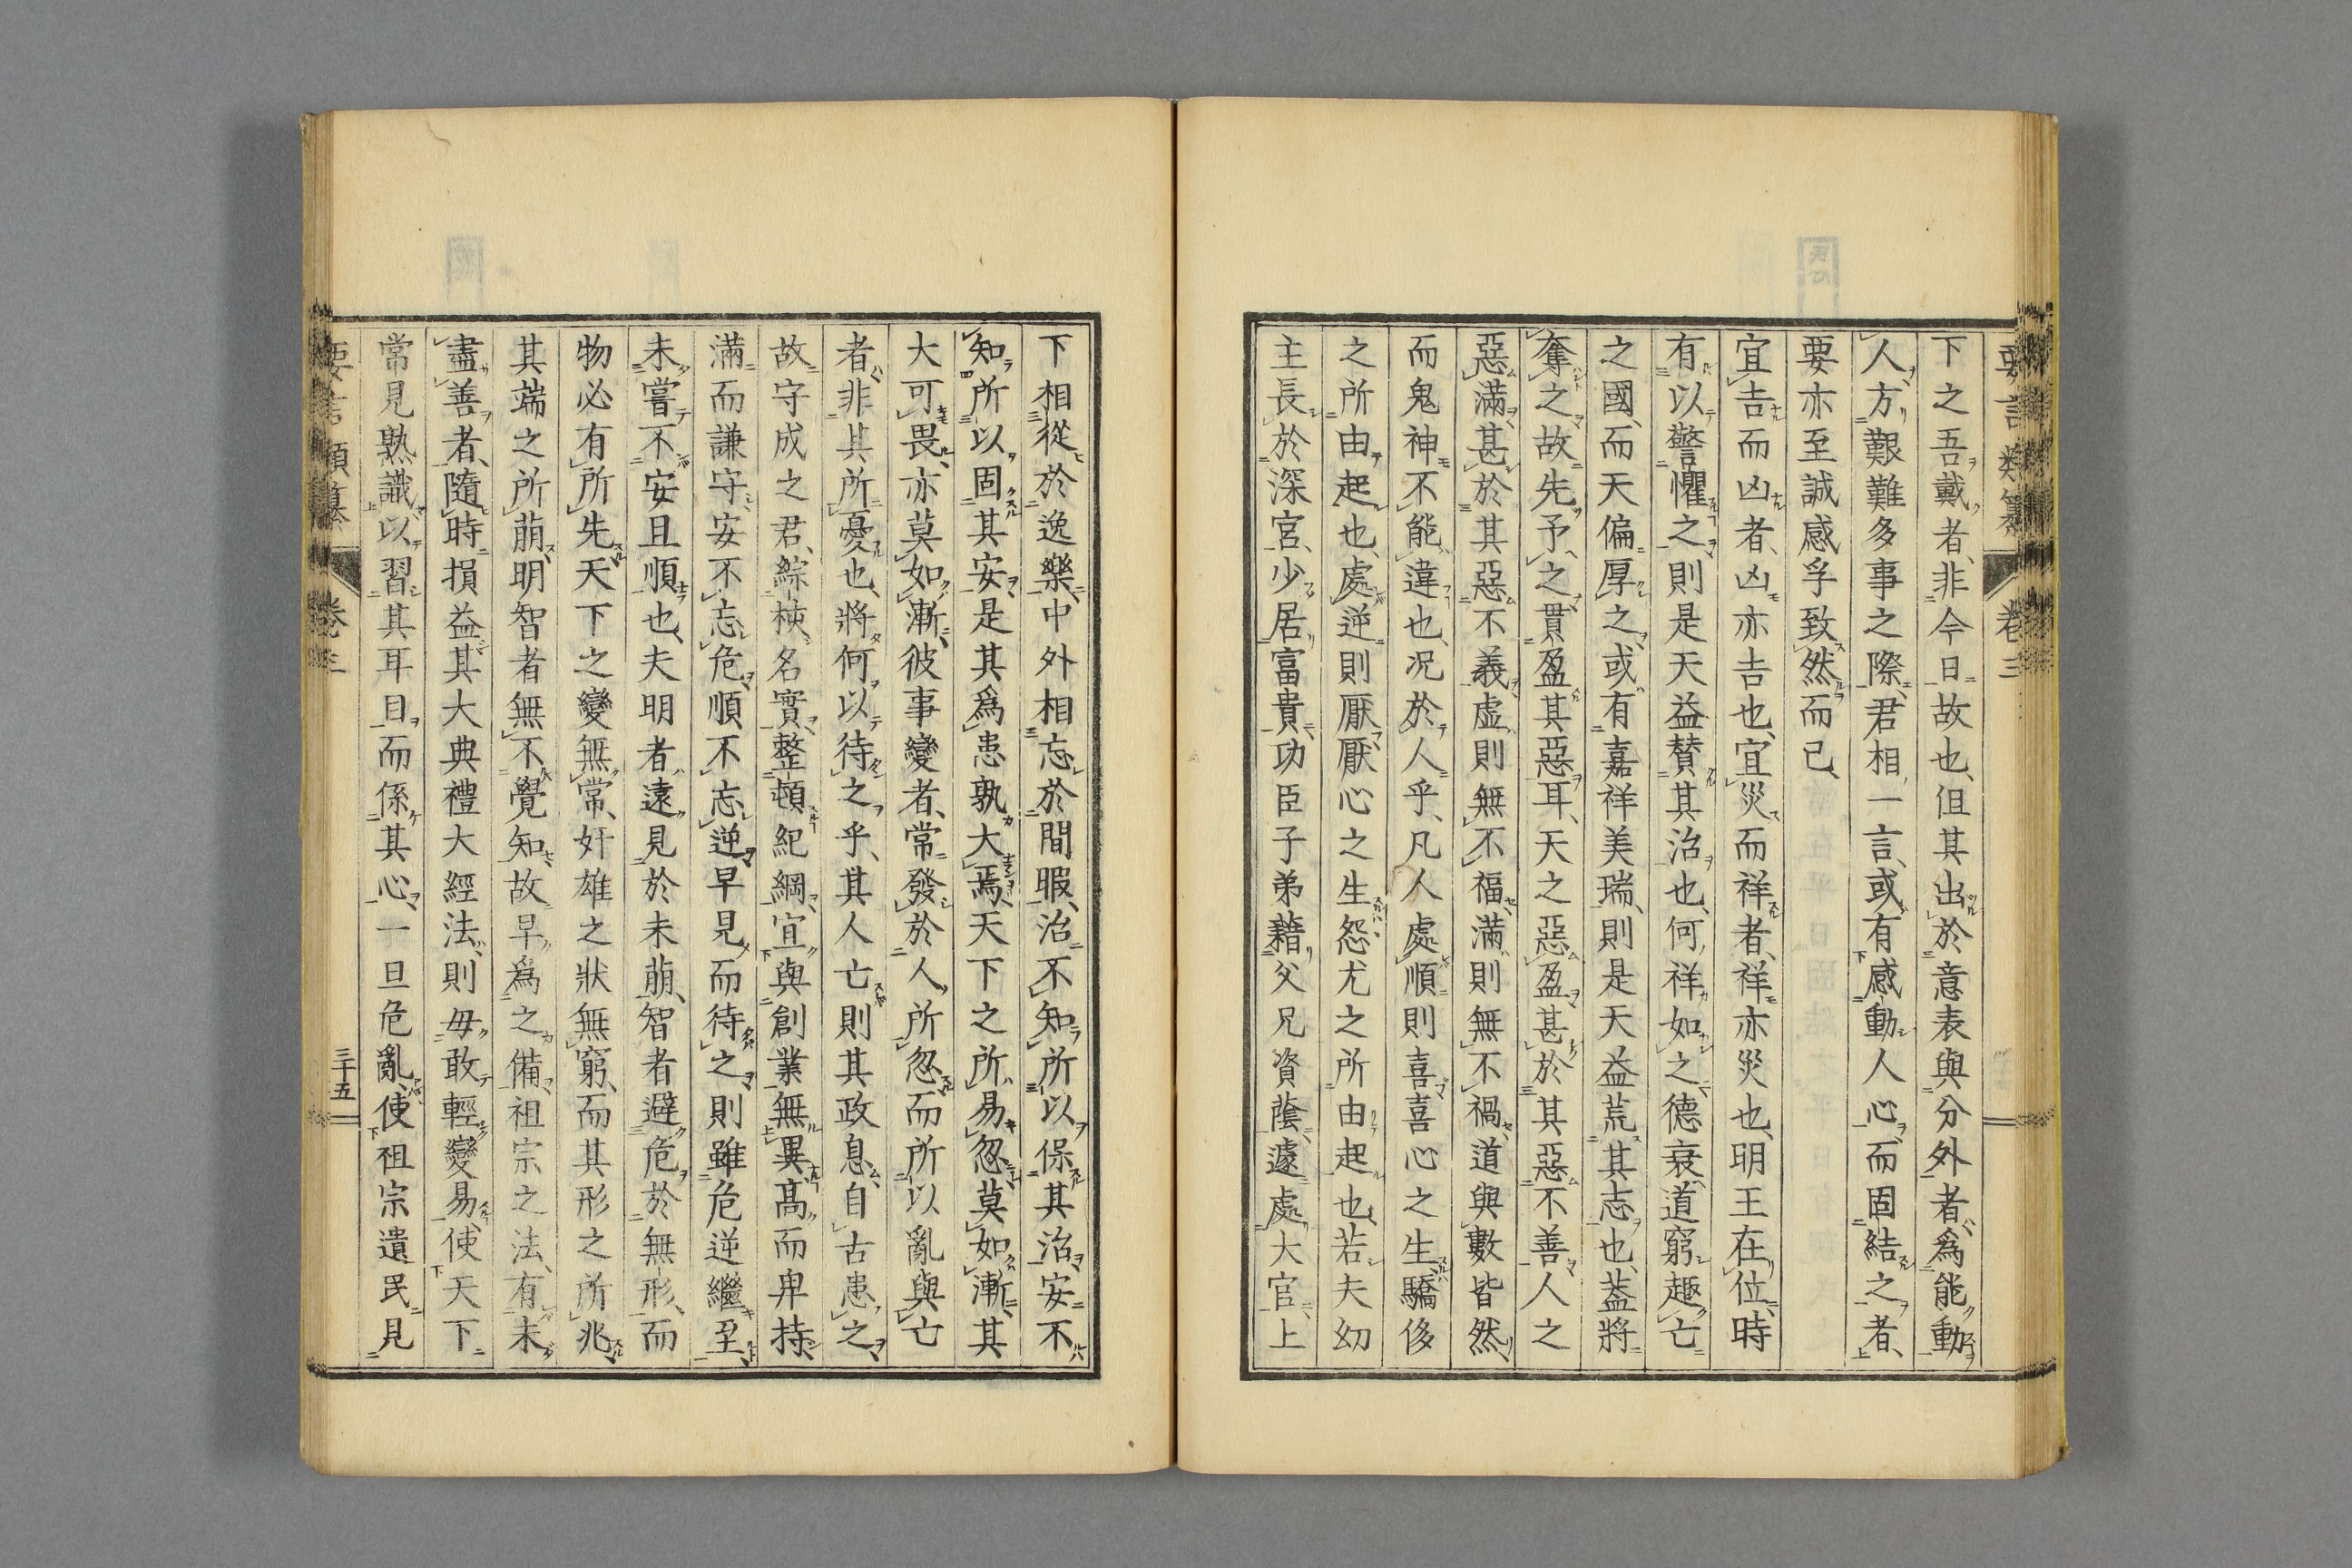 要言類纂 卷三
下之吾戴者、非今日故也、伹其出於意表與分外者、爲能動
人方艱難多事之際、君相一言、或有感動人心、而固結之者、
要亦至誠感孚致然而已、
宜吉而凶者、凶亦吉也、宜災而祥者、祥亦災也、明王在位、時
有以警懼之、則是天益賛其治也、何祥如之、德衰道窮趣亡
之國、而天偏厚之、或有嘉祥美瑞、則是天益荒其志也、葢將
奪之、故先予之、貫盈其惡耳、天之惡盈甚於其惡不善、人之
惡滿甚於其惡不義、虛則無不福、滿則無不禍、道與數皆然、
而鬼神不能違也、况於人乎、凡人處順則喜、喜心之生、驕侈
之所由起也、處逆則厭、厭心之生、怨尤之所由起也、若夫幼
主長於深宮、少居富貴、功臣子弟藉父兄資蔭、遽處大官、上
下相從於逸樂、中外相忘於間暇、治不知所以保其治、安不
知所以固其安、是其爲患孰大焉、天下之所易忽、莫如漸、其
大可畏、亦莫如漸、彼事變者、常發於人所忽、而所以亂與亡
者、非其所憂也、將何以待之乎、其人亡則其政息、自古患之、
故守成之君、綜核名實、整頓紀綱、宜與創業無異、高而卑持、
滿而謙守、安不忘危、順不忘逆、早見而待之、則雖危逆繼至、
未嘗不安且順也、夫明者、遠見於未萠、智者避危於無形、而
物必有所先、天下之變無常、奸雄之狀無窮、而其形之所兆、
其端之所萠、明智者無不覺知、故早爲之備、祖宗之法、有未
盡善者、隨時損益、其大典禮大經法、則毋敢輕變易、使天下
常見熟識以習其耳目、而係其心、一旦危亂、使祖宗遺民見
要言類纂 卷三 三十五